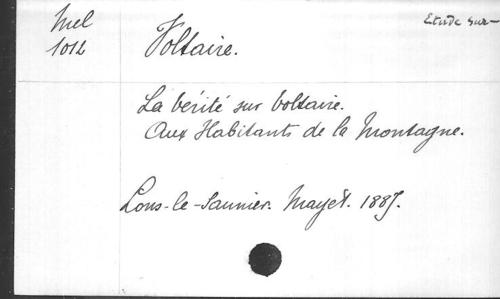 Mel
1012
Etude sur-
Voltaire.
La Vérité sur Voltaire.
Aux Habitants de la Montagne.
Lons-le-Saunier. Mayet.